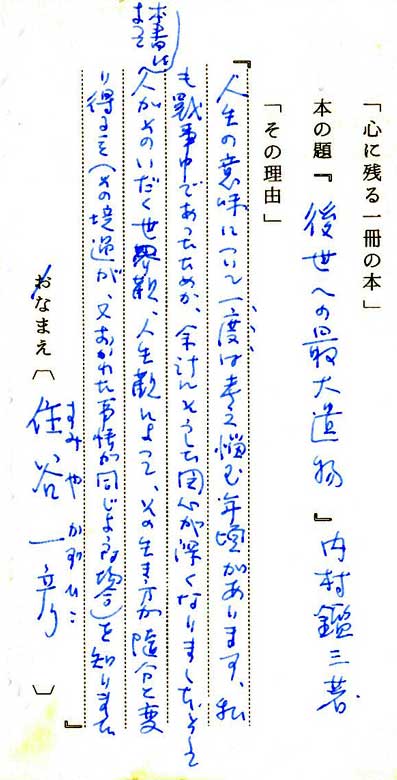 「心に残る一冊の本」
本の題『後世への最大遺物』内村鑑三著
「その理由」
『人生の意味について一度は考え悩む年頃があります。私
も戦争中であったためか、余計にそうした関心が深くなりました。そして
本書によって
人がそのいだく世界観、人生観によって、その生き方が随分と変
り得る(その境遇が、又おかれた事情が同じような場合)を知りました
』
おなまえ〔住谷一彦〕
すみやかずひこ